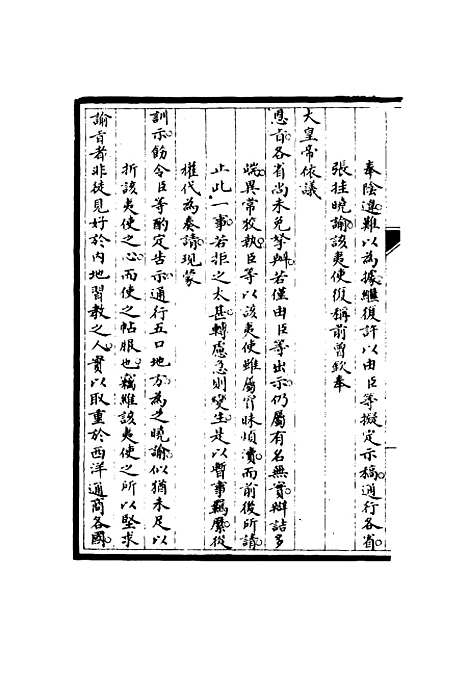 奉陰違難以為據繼復許以由臣等擬定示稿通行各省
張挂曉諭該夷使復稱前曾欽奉
大皇帝依議
恩旨各省尚未免拏辦若僅由臣等出示仍屬有名無實辯詰多
端異常狡執臣等以該夷使雖屬冒昧煩瀆而前後所請
止此一事若拒之太甚轉慮急則變生是以暫事羈縻從
權代為奏請現蒙
訓示飭令臣等酌定告示通行五口地方為之曉諭似猶未足以
折該夷使之心而使之帖服也竊維該夷使之所以堅求
諭旨者非徒見好於內地習教之人實以取重於西洋通商各國